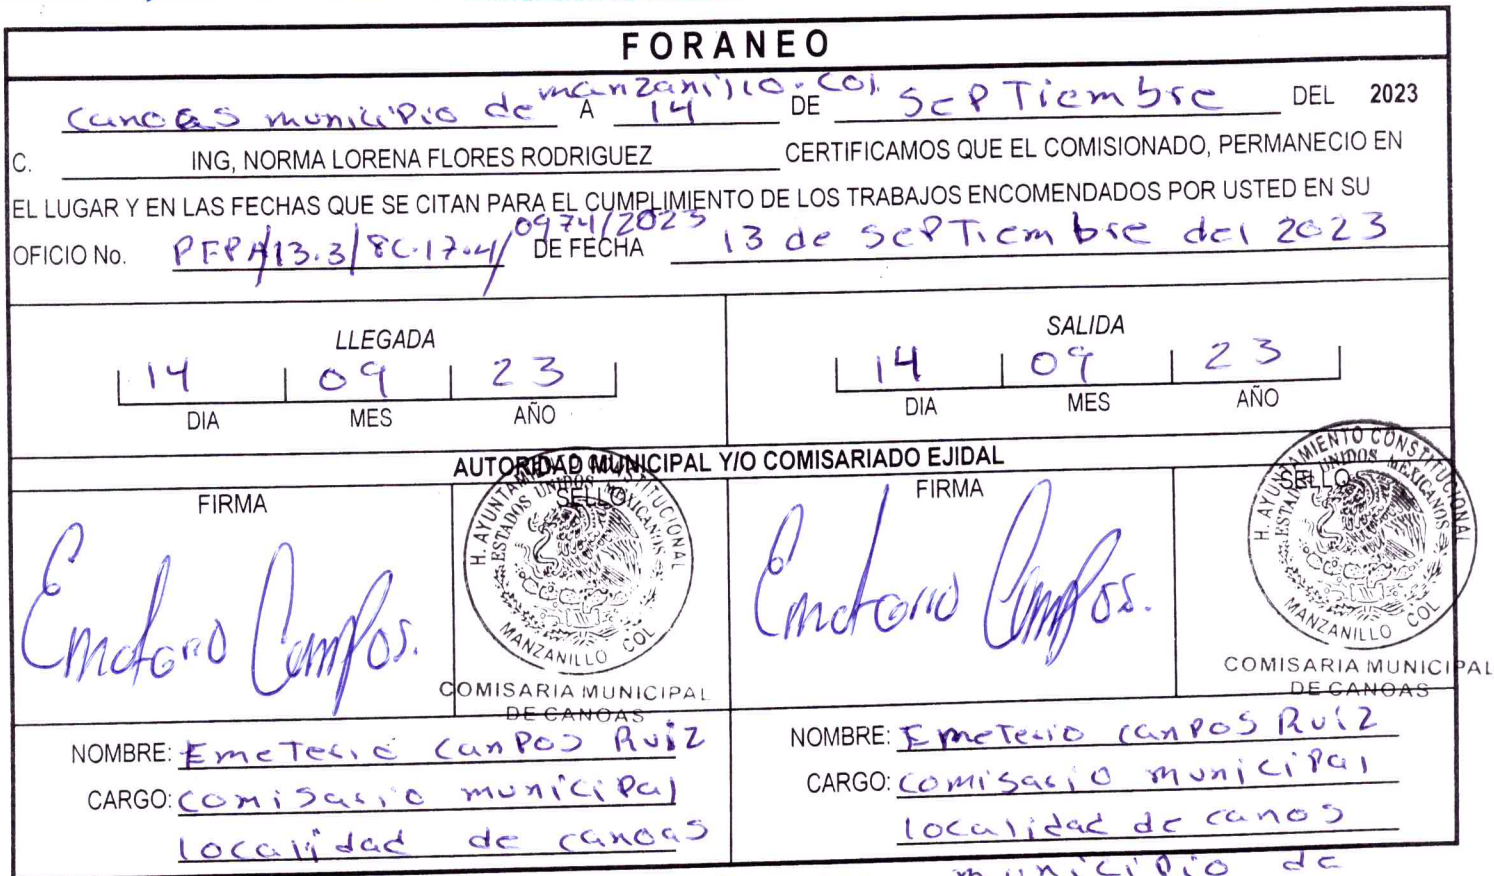 FORANEO
canoas municipio de manzanillo. Col. A 14 DE SePTiembre DEL 2023
C. ING, NORMA LORENA FLORES RODRIGUEZ CERTIFICAMOS QUE EL COMISIONADO, PERMANECIO EN
EL LUGAR Y EN LAS FECHAS QUE SE CITAN PARA EL CUMPLIMIENTO DE LOS TRABAJOS ENCOMENDADOS POR USTED EN SU
OFICIO No. PFPA/13.3/8C.17.4/0974/2023 DE FECHA 13 de SePTiembre del 2023
LLEGADA
14 09 23
DIA MES AÑO
SALIDA
14 09 23
DIA MES AÑO
AUTORIDAD MUNICIPAL Y/O COMISARIADO EJIDAL
FIRMA
Emeterio Campos.
SELLO
H. AYUNTAMIENTO CONSTITUCIONAL
ESTADOS UNIDOS MEXICANOS
MANZANILLO COL
COMISARIA MUNICIPAL
DE CANOAS
NOMBRE: EmeTerio canPos Ruiz
CARGO: comisario municiPal
localidad de canoas
FIRMA
Emeterio Campos.
SELLO
H. AYUNTAMIENTO CONSTITUCIONAL
ESTADOS UNIDOS MEXICANOS
MANZANILLO COL
COMISARIA MUNICIPAL
DE CANOAS
NOMBRE: EmeTerio canPos Ruiz
CARGO: comisario municiPal
localidad de canos
municiPio de